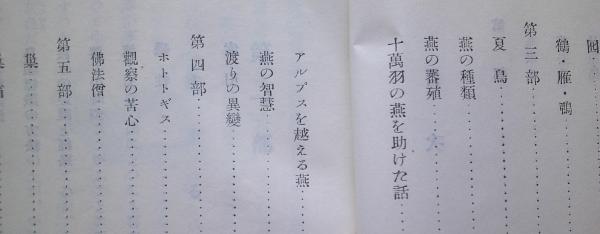 鶴・雁・鴨
第三部
夏鳥
燕の種類
燕の蕃殖
十萬羽の燕を助けた話
アルプスを越える燕
燕の智慧
渡りの異變
第四部
ホトトギス
觀察の苦心
佛法僧
第五部
巢